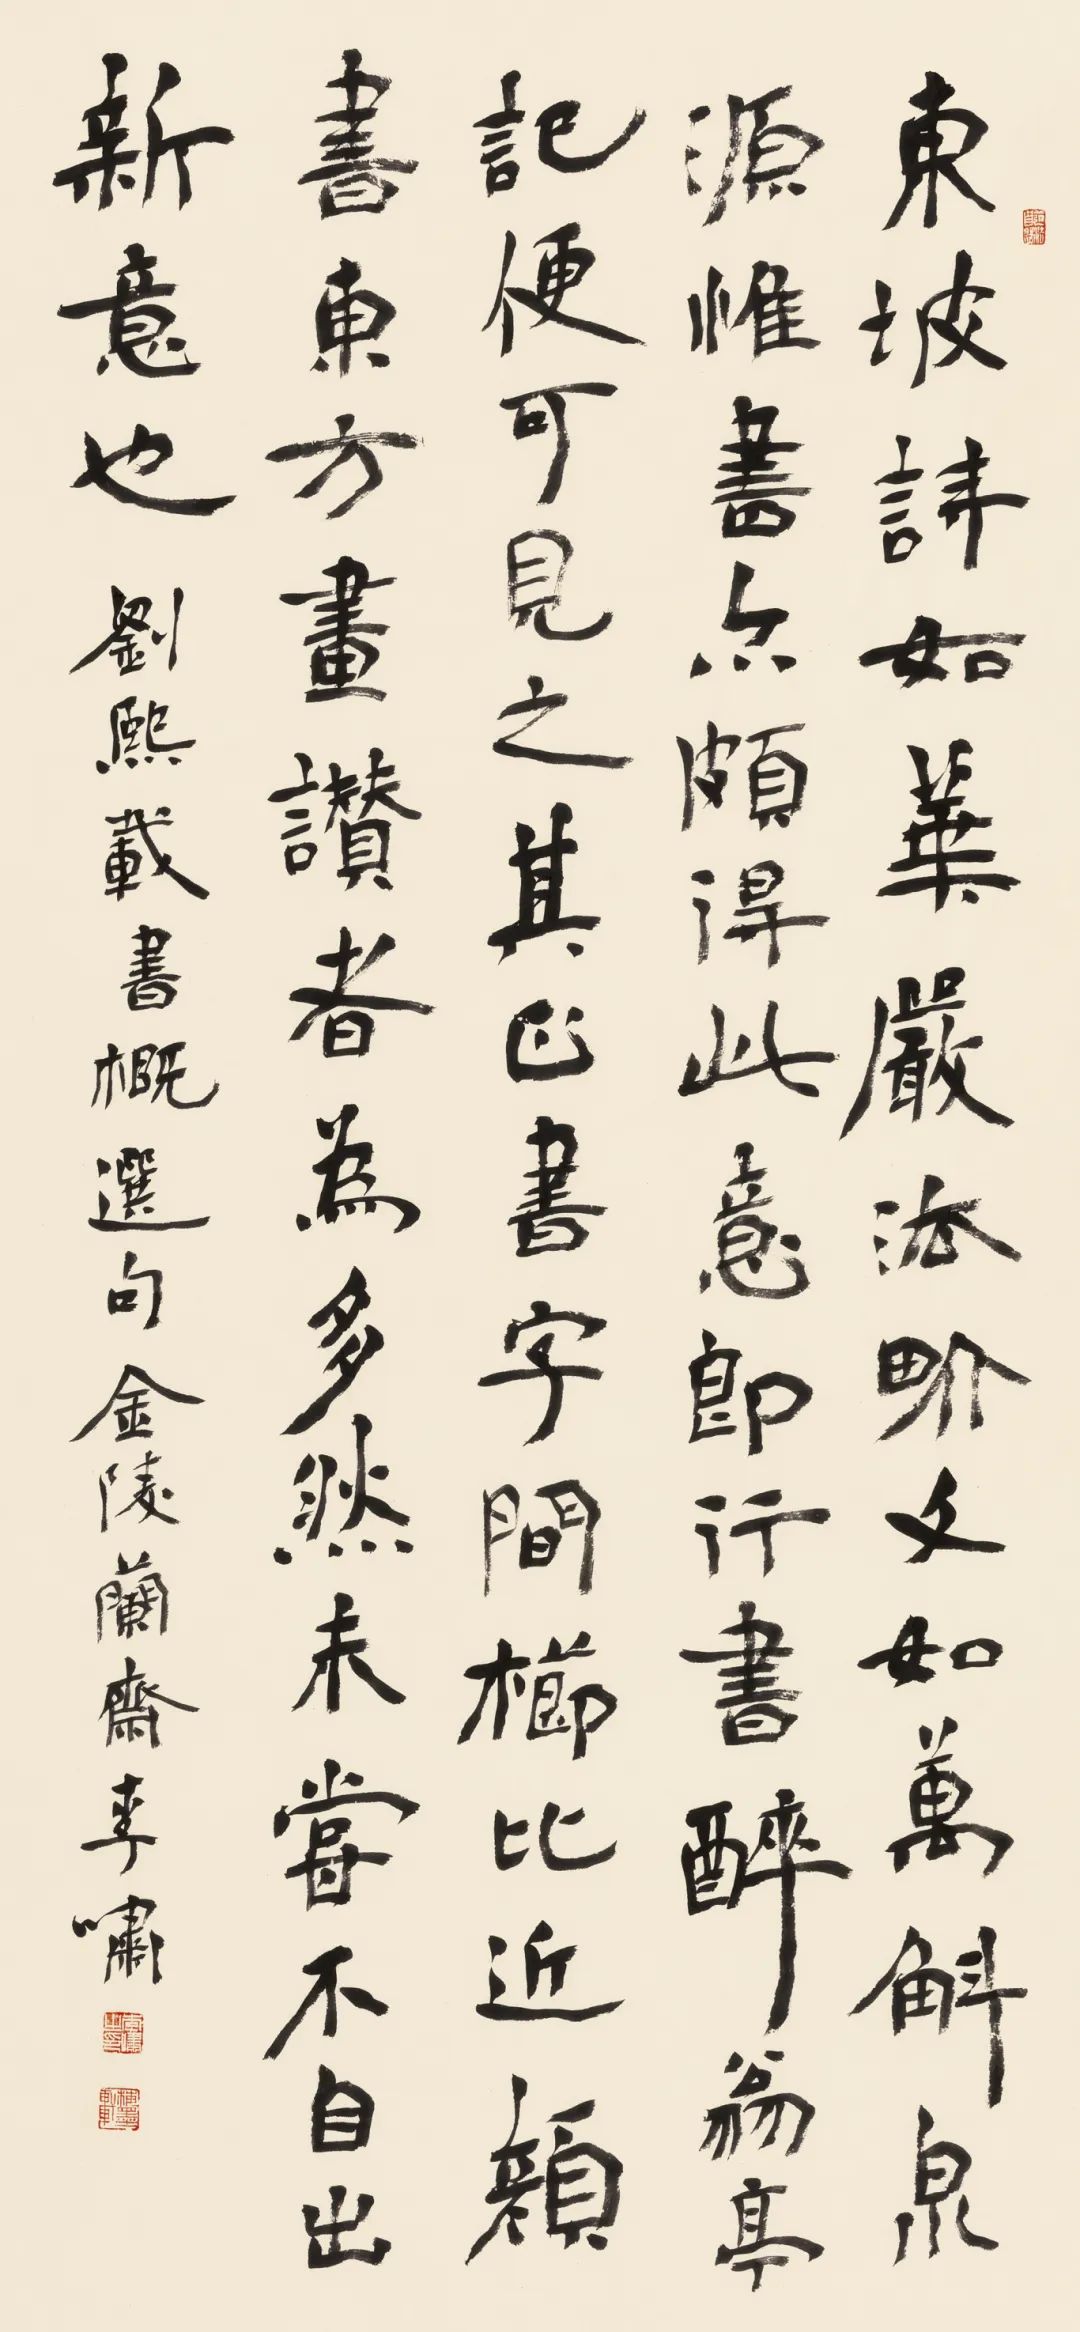 東坡詩如華嚴法界文如萬斛泉
源惟書亦頗得此意即行書醉翁亭
記便可見之其正書字間櫛比近顏
書東方畫讚者為多然未嘗不自出
新意也 劉熙載書概選句 金陵蘭齋李嘯